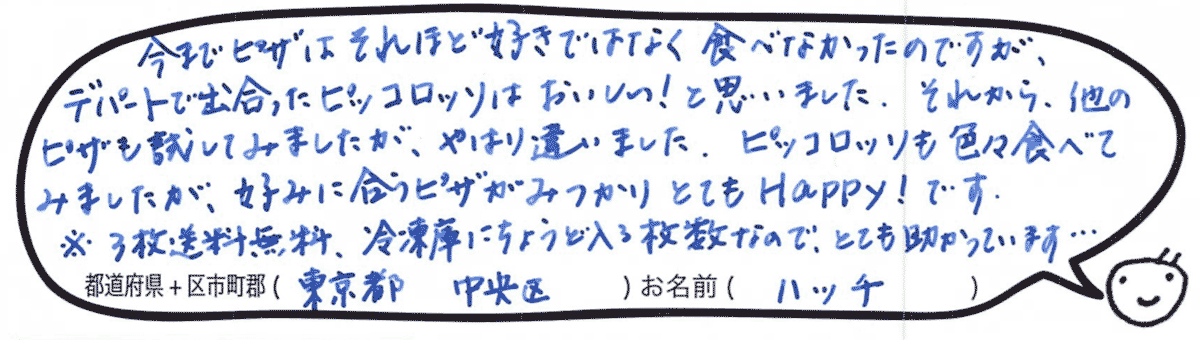 今までピザはそれほど好きではなく食べなかったのですが、
デパートで出合ったピッコロッソはおいしい!と思いました. それから、他の
ピザも試してみましたが、やはり違いました. ピッコロッソも色々食べて
みましたが、好みに合うピザがみつかりとてもHappy!です.
※3枚送料無料、冷凍庫にちょうど入る枚数なので、とても助かっています…
都道府県+区市町郡(東京都 中央区)お名前(ハッチ)